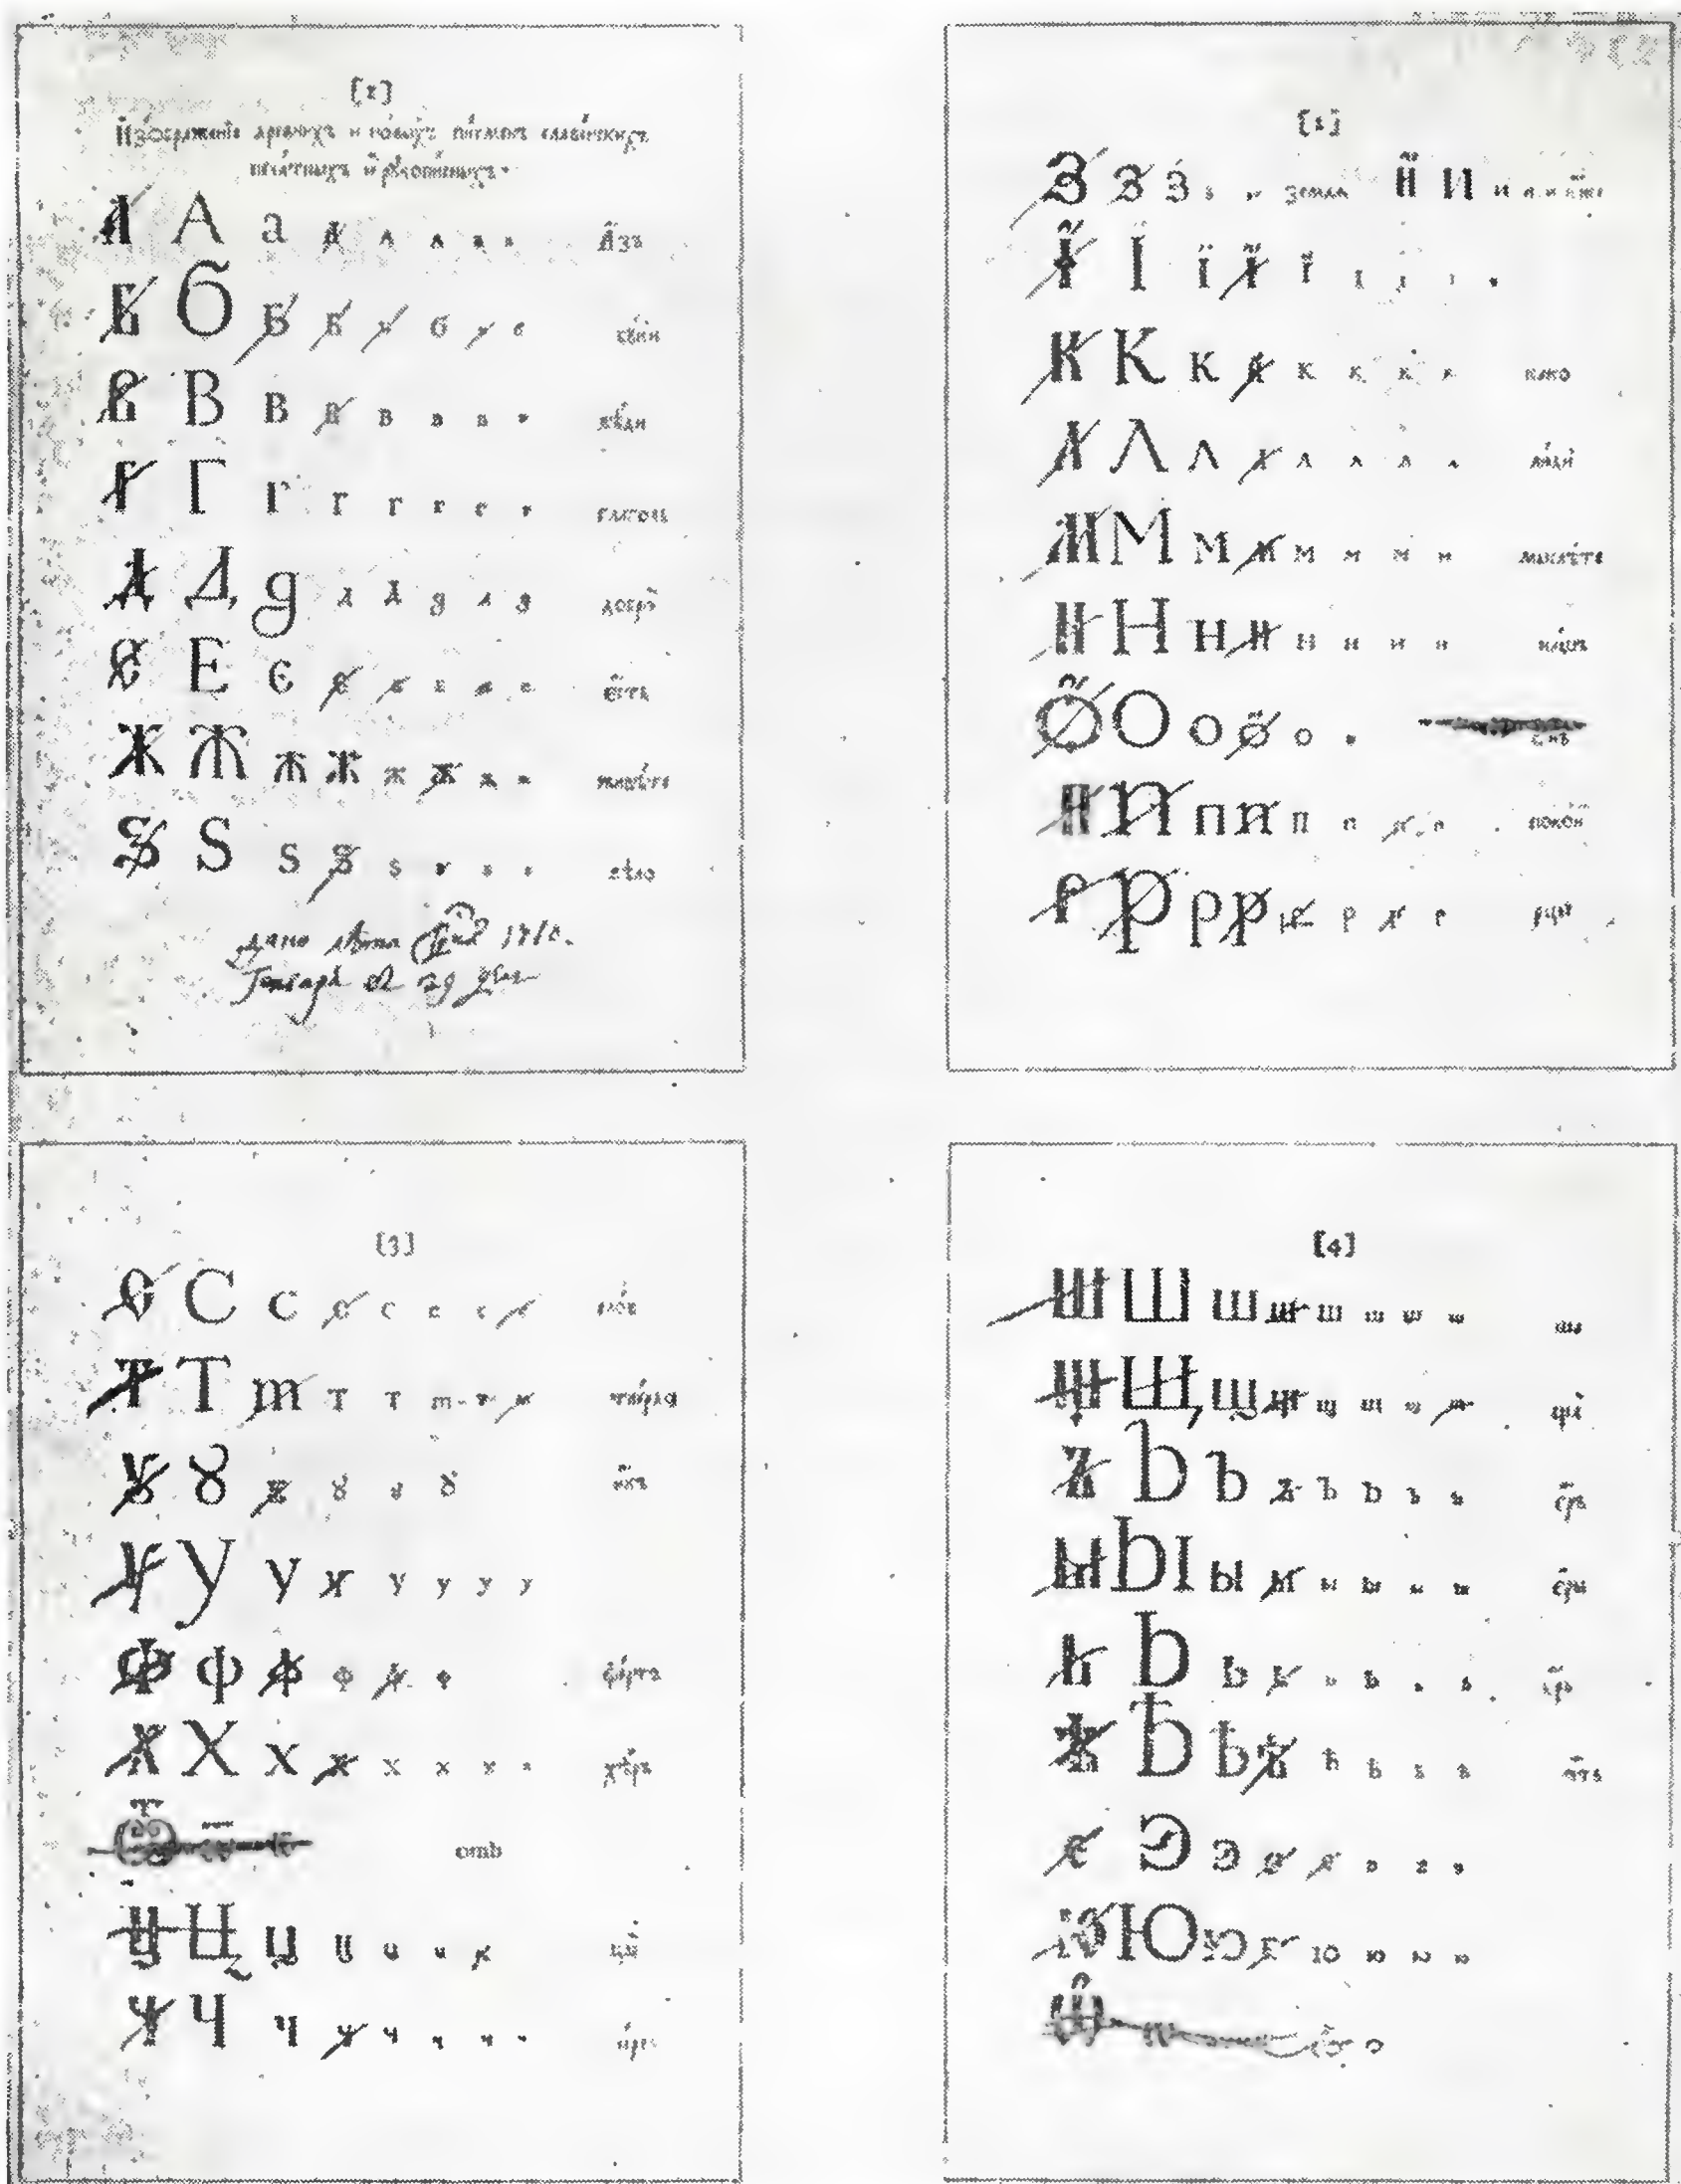 [1]
Изображенїе древнихъ и новыхъ писменъ славенскихъ
печатныхъ и рукописныхъ.
А А а а а а а а азъ
Б Б б б б б б б буки
В В в в в в в в вѣди
Г Г г г г г г г глаголь
Д Д д д д д д д добро
Е Е е е е е е е есть
Ж Ж ж ж ж ж ж ж живѣте
Ѕ Ѕ ѕ ѕ ѕ ѕ ѕ ѕ ѕѣло
Дано лѣта 1710.
Генваря въ 29 день
[2]
З З з з земля И И и и и иже
Ї І ї ї ї і і і
К К к к к к к к како
Л Л л л л л л л люди
М М м м м м м м мыслѣте
Н Н н н н н н н нашъ
О О о о о о онъ
П П п п п п п п покой
Р Р р р р р р р рцы
[3]
С С с с с с с с слово
Т Т т т т т т т твердо
Ꙋ Ꙋ ꙋ ꙋ ꙋ ꙋ икъ
У У у у у у у у
Ф ф ф ф ф ф фертъ
Х Х х х х х х х хѣръ
Ѿ отъ
Ц Ц ц ц ц ц ц ц цы
Ч Ч ч ч ч ч ч ч
[4]
Ш Ш ш ш ш ш ш ш ша
Щ Щ щ щ щ щ щ щ ща
Ъ Ъ ъ ъ ъ ъ ъ ъ еръ
Ы Ы ы ы ы ы ы ы еры
Ь Ь ь ь ь ь ь ь ерь
Ѣ Ѣ ѣ ѣ ѣ ѣ ѣ ѣ ять
Є Э э э э э э э
Ю Ю ю ю ю ю ю ю